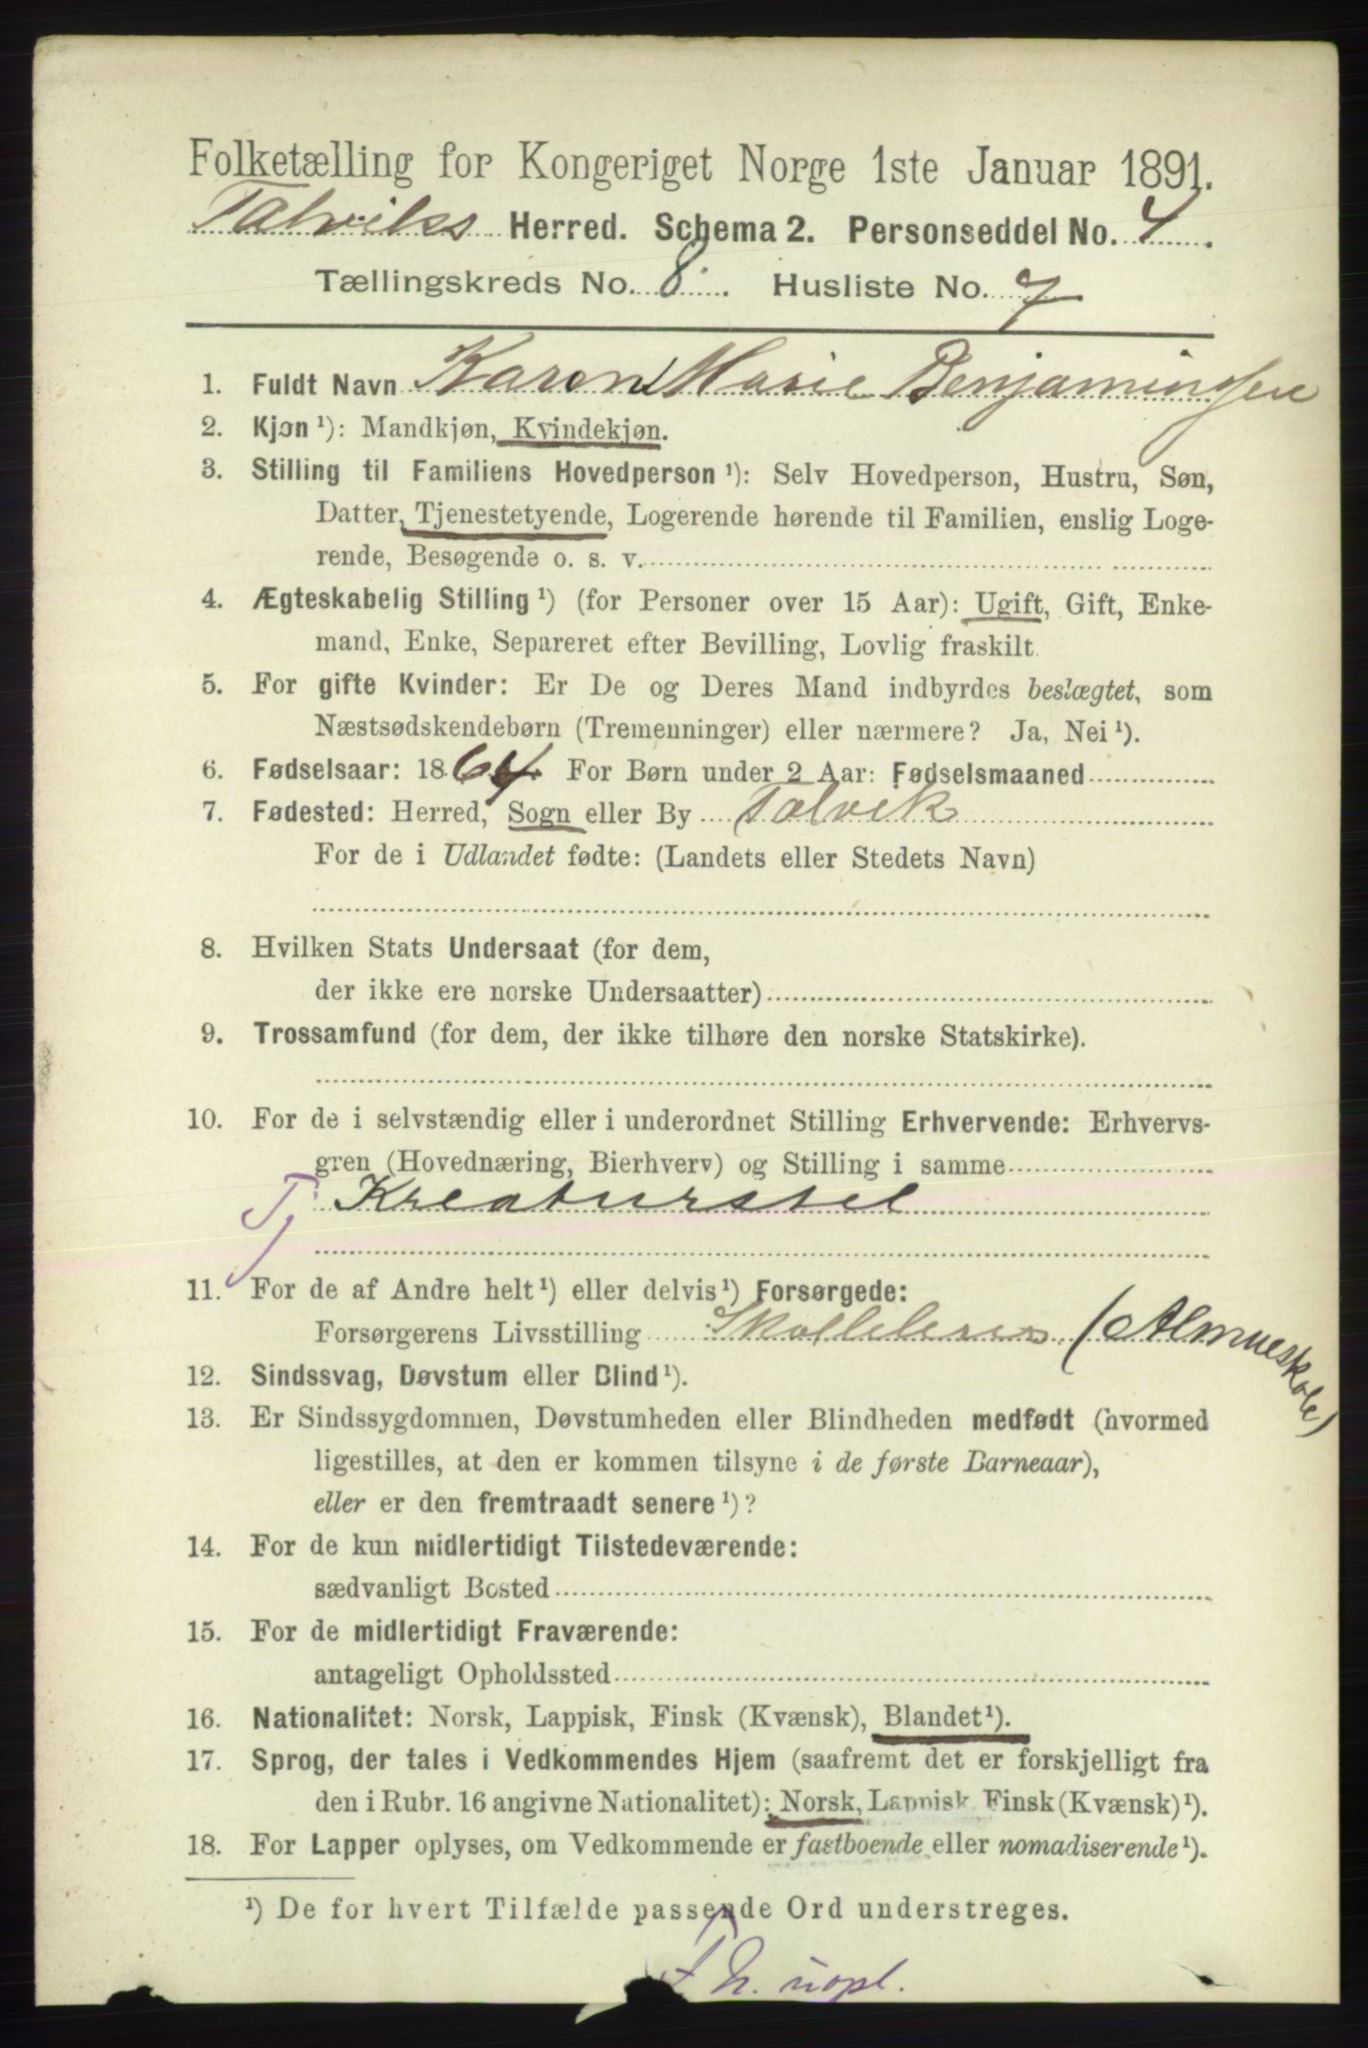 Folketælling for Kongeriget Norge 1ste Januar 1891.
Talviks Herred. Schema 2. Personseddel No. 4.
Tællingskreds No. 8. Husliste No. 7
1. Fuldt Navn Karen Marie Benjaminsen
2. Kjøn ¹): Mandkjøn, Kvindekjøn.
3. Stilling til Familiens Hovedperson ¹): Selv Hovedperson, Hustru, Søn,
Datter, Tjenestetyende, Logerende hørende til Familien, enslig Loge-
rende, Besøgende o. s. v.
4. Ægteskabelig Stilling ¹) (for Personer over 15 Aar): Ugift, Gift, Enke-
mand, Enke, Separeret efter Bevilling, Lovlig fraskilt.
5. For gifte Kvinder: Er De og Deres Mand indbyrdes beslægtet, som
Næstsødskendebørn (Tremenninger) eller nærmere? Ja, Nei ¹).
6. Fødselsaar: 1864. For Børn under 2 Aar: Fødselsmaaned
7. Fødested: Herred, Sogn eller By Talvik
For de i Udlandet fødte: (Landets eller Stedets Navn)
8. Hvilken Stats Undersaat (for dem,
der ikke ere norske Undersaatter)
9. Trossamfund (for dem, der ikke tilhøre den norske Statskirke).
10. For de i selvstændig eller i underordnet Stilling Erhvervende: Erhvervs-
gren (Hovednæring, Bierhverv) og Stilling i samme
Tj Kreaturstel
11. For de af Andre helt ¹) eller delvis ¹) Forsørgede:
Forsørgerens Livsstilling (Almueskole)
12. Sindssvag, Døvstum eller Blind ¹).
13. Er Sindssygdommen, Døvstumheden eller Blindheden medfødt (hvormed
ligestilles, at den er kommen tilsyne i de første Barneaar),
eller er den fremtraadt senere ¹)?
14. For de kun midlertidigt Tilstedeværende:
sædvanligt Bosted
15. For de midlertidigt Fraværende:
antageligt Opholdssted
16. Nationalitet: Norsk, Lappisk, Finsk (Kvænsk), Blandet ¹).
17. Sprog, der tales i Vedkommendes Hjem (saafremt det er forskjelligt fra
den i Rubr. 16 angivne Nationalitet): Norsk, Lappisk, Finsk (Kvænsk) ¹).
18. For Lapper oplyses, om Vedkommende er fastboende eller nomadiserende ¹).
¹) De for hvert Tilfælde passende Ord understreges.